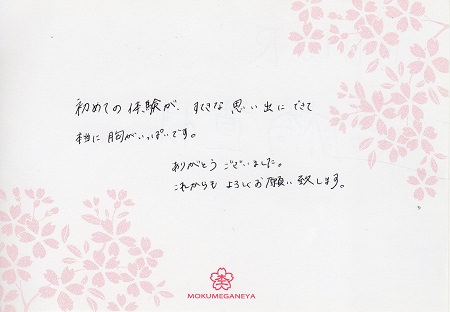 初めての体験が、すてきな思い出にできて
本当に胸がいっぱいです。
ありがとうございました。
これからもよろしくお願い致します。
MOKUMEGANEYA